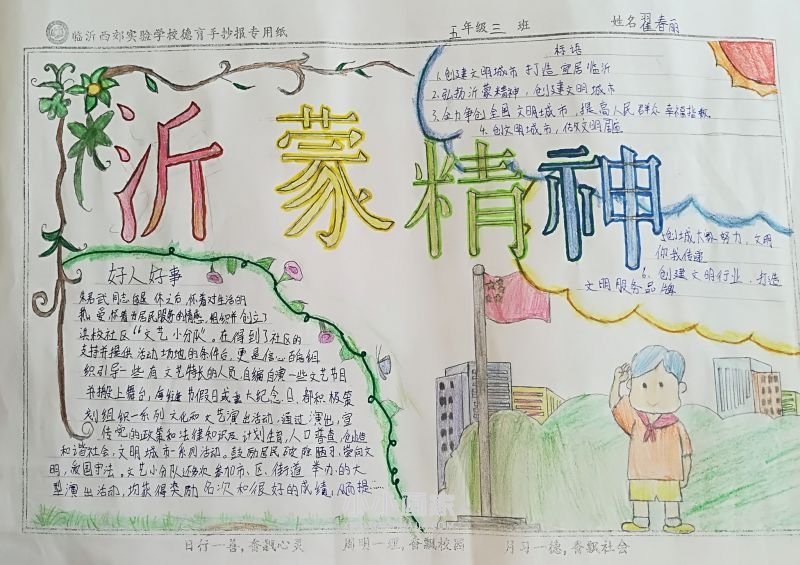 临沂西郊实验学校德育手抄报专用纸
五年级三 班
姓名翟春丽
标语
1.创建文明城市 打造宜居临沂
2.弘扬沂蒙精神，创建文明城市
3.全力争创全国文明城市，提高人民群众幸福指数
4.创文明城市，做文明居民
5.创城大家努力，文明
你我传递
6.创建文明行业，打造
文明服务品牌
沂蒙精神
好人好事
同志 休之后，怀着对生活的
热爱怀着为居民服务的情感，组织并创立了
社区“文艺小分队”。在得到了社区的
支持并提供活动场地的条件后，更是信心百倍组
织引导一些有文艺特长的人员，自编自演一些文艺节目
并搬上舞台，每逢节假日或重大纪念日，都积极策
划组织一系列文化和文艺演出活动，通过演出，宣
传党的政策和法律知识及计划生育，人口普查，创造
和谐社会，文明城市系列活动。鼓励居民破除陋习，崇尚文
明，爱国守法。文艺小分队还多次参加市、区、街道举办的大
型演出活动，均获得奖励名次和很好的成绩，从而提……
日行一善，香飘心灵
周明一理，香飘校园
月习一德，香飘社会